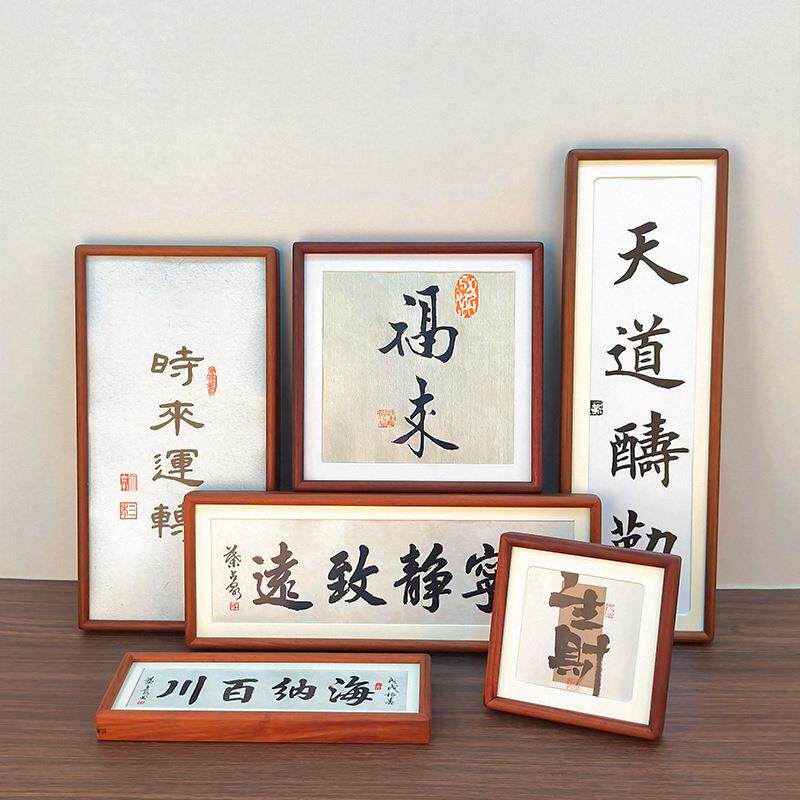 時來運轉
福来
天道醻勤
寧静致遠
海納百川
生財